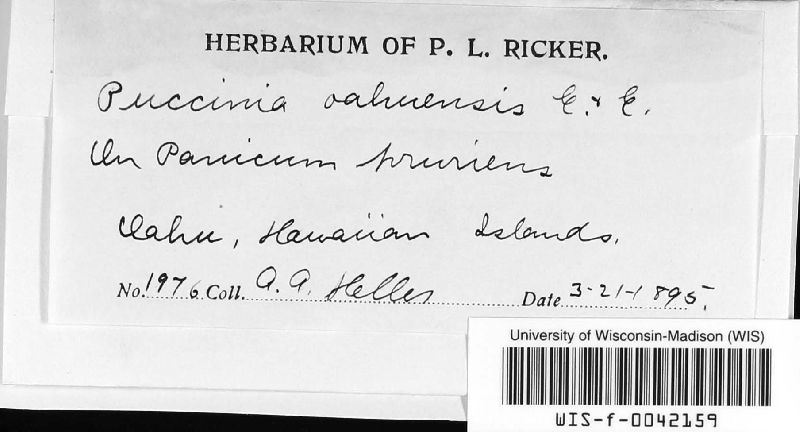 HERBARIUM OF P. L. RICKER.
Puccinia oahuensis E. & E.
On Panicum pruriens
Oahu, Hawaiian Islands.
No. 1976 Coll. A. A. Heller Date 3-21-1895.
University of Wisconsin-Madison (WIS)
WIS-f-0042159